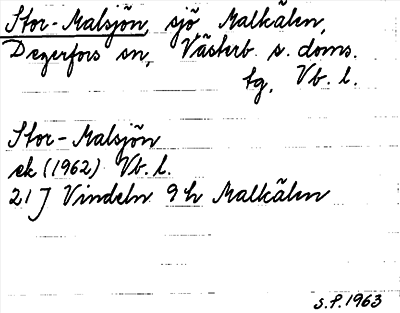 Stor-Malsjön, sjö Malkälen,
Degerfors sn, Västerb. s. doms.
tg, Vb. l.
Stor-Malsjön
ek (1962) Vb. l.
21 J Vindeln 9 h Malkälen
S.P. 1963